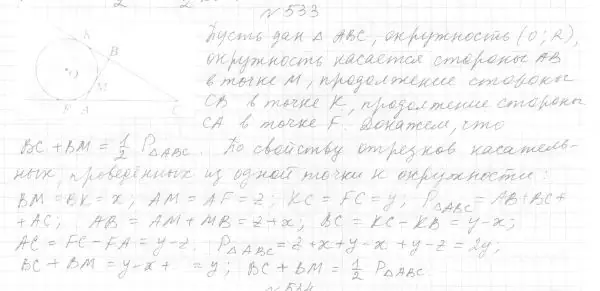 №533
Пусть дан △ ABC, окружность (O; R),
окружность касается стороны AB
в точке M, продолжение стороны
CB в точке K, продолжение стороны
CA в точке F. Докажем, что
BC + BM = 1/2 P△ABC. По свойству отрезков касатель-
ных, проведённых из одной точки к окружности:
BM = BK = x; AM = AF = z; KC = FC = y; P△ABC = AB + BC +
+ AC; AB = AM + MB = z + x; BC = KC - KB = y - x;
AC = FC - FA = y - z. P△ABC = z + x + y - x + y - z = 2y;
BC + BM = y - x + = y; BC + BM = 1/2 P△ABC.
№534
K
B
O
M
F A C